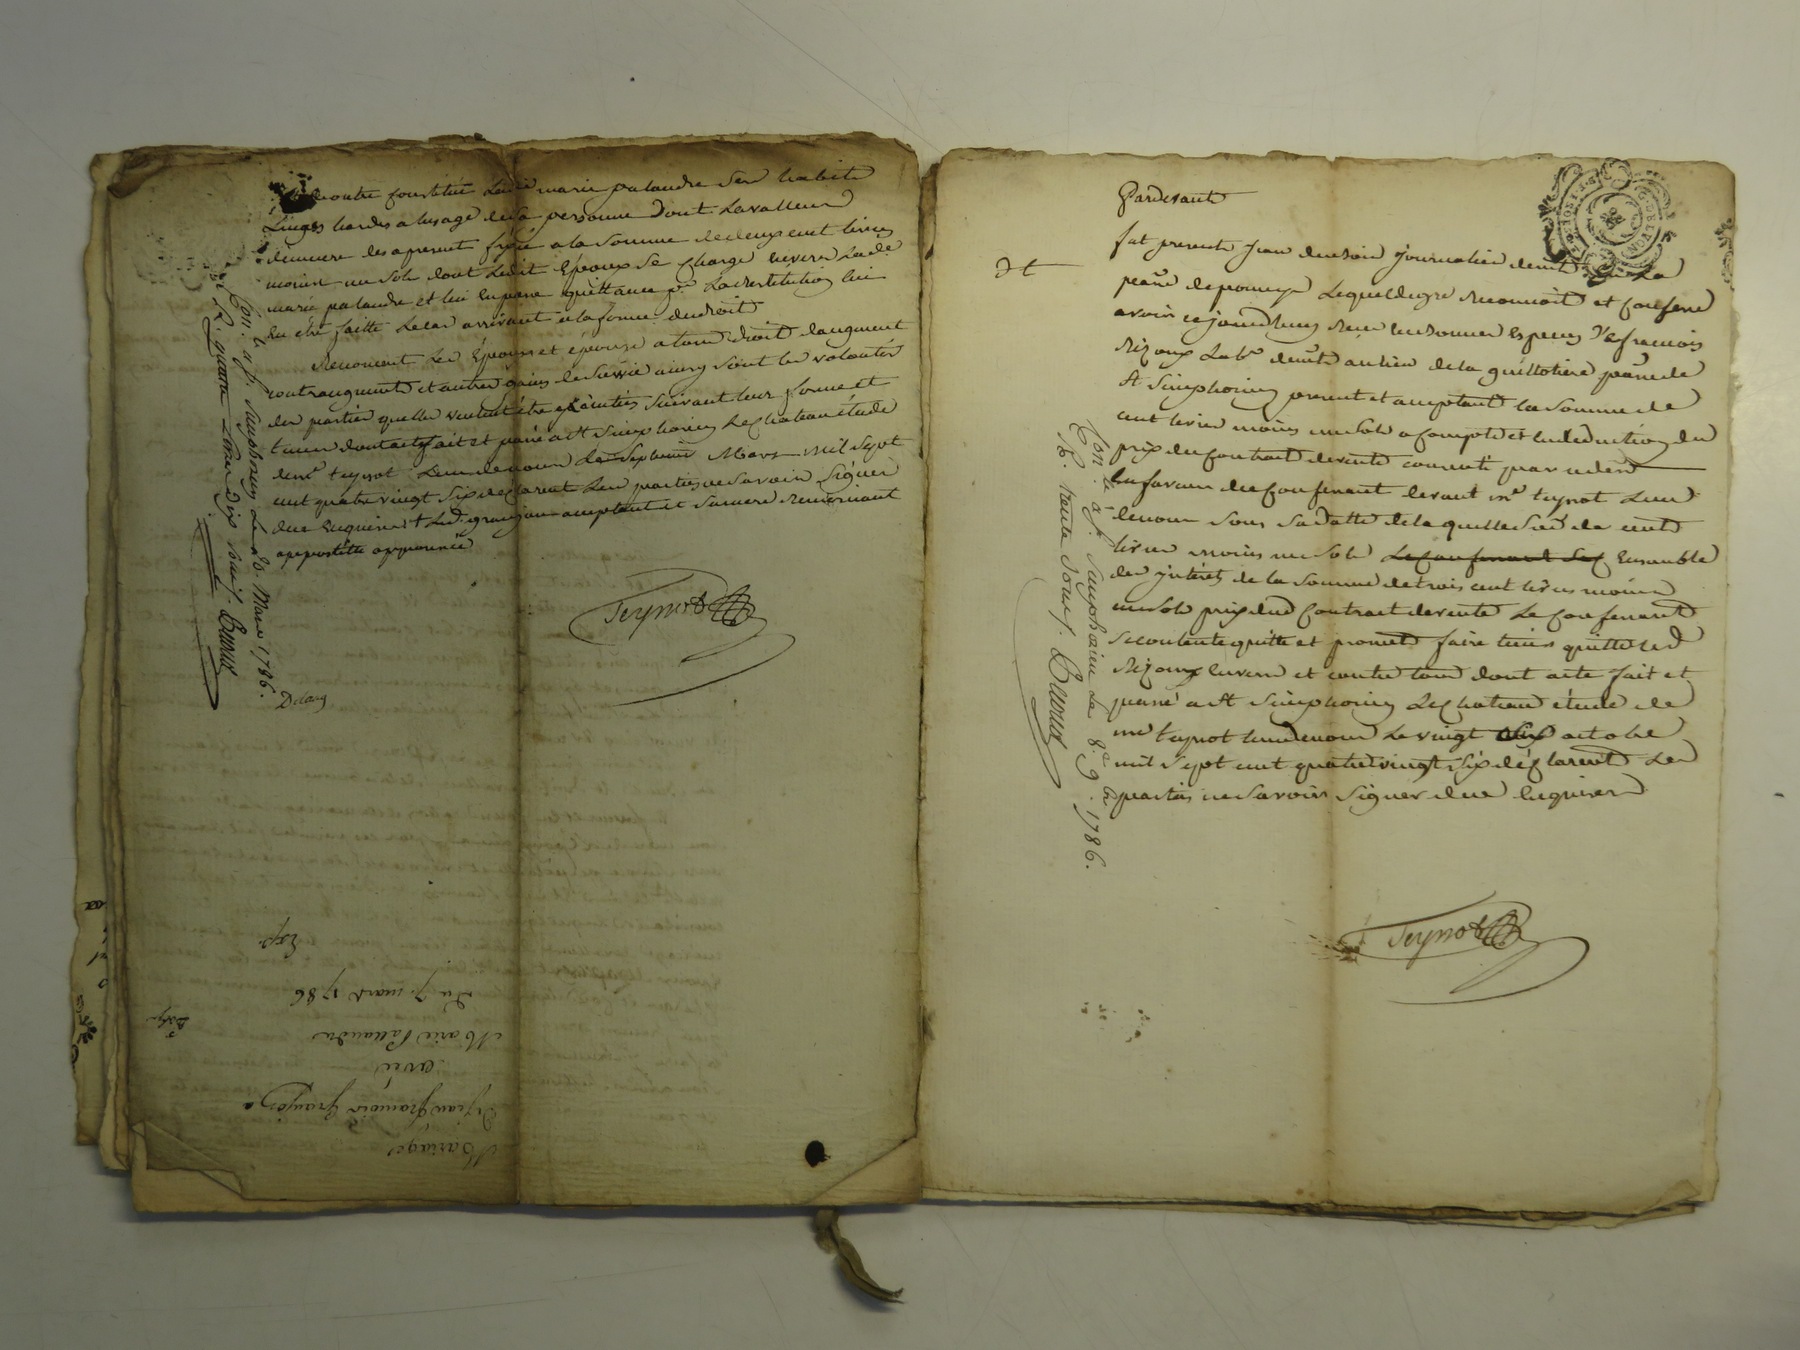 de outre constitué Ladte marie palandre Ses habits
Linges hardes a lusage de Sa personne dont La valleur
demeure des apresent fixée a la Somme de deux cent livres
moins un Sol dont Ledit Epoux Se charge envers Lade
marie palandre et lui en passe quittance pr La restitution lui
en etre faitte Le cas arrivant a la forme du droit
Renoncent Les Epoux et épouse a tous droit daugment
contraugment et autres gains de Survie ainsy Sont les volontés
des parties quelles veulent être executées Suivant leur forme et
teneur dont acte fait et passé a St Simphorien Le chateau étude
de me teynot Lun de nous Le Sept Mars mil Sept
cent quatre vingt Six declarent Les parties ne Savoir Signer
due enquises + Led. grangeon acceptant et remerciant
appostille approuvée
Teynot
Con. té a St. Simphorien Le 20. Mars 1786.
R. quatre Livres dix Sous. Buorut
Exp
du 7. mars 1786
Marie Pallandre
avec
De jean françois grangeon
Mariage
Pardevant
fut present jean journalier demt La
psse de pomeys Lequel de gré reconnoit et confesse
avoir cejourdhuy reçu en bonnes especes de Sr francois
Rizoux Labr demt au lieu de la guillotiere psse de
St Simphorien present et acceptant la Somme de
cent livres moins un Sol a compte et en deduction du
prix du contrat de vente consenti par
en faveur du confessant devant me teynot Lun
de nous Sous Sa datte de laquelle Sde de cent
livres moins un Sol Ensemble
des jnterets de la Somme de trois cent livres moins
un Sol prix dud contrat de vente Le confessant
Se contente quitte et promet faire tenir quitte led
Rizoux envers et contre tous dont acte fait et
passé a St Simphorien Le chateau étude de
me teynot lun de nous Le vingt octobre
mil Sept cent quatre vingt Six déclarent Les
parties ne Savoir Signer due enquises
Teynot
Con. té a St. Simphorien Le 8. 9.bre 1786.
R. trente Sous. Buorut
G. DE LYON